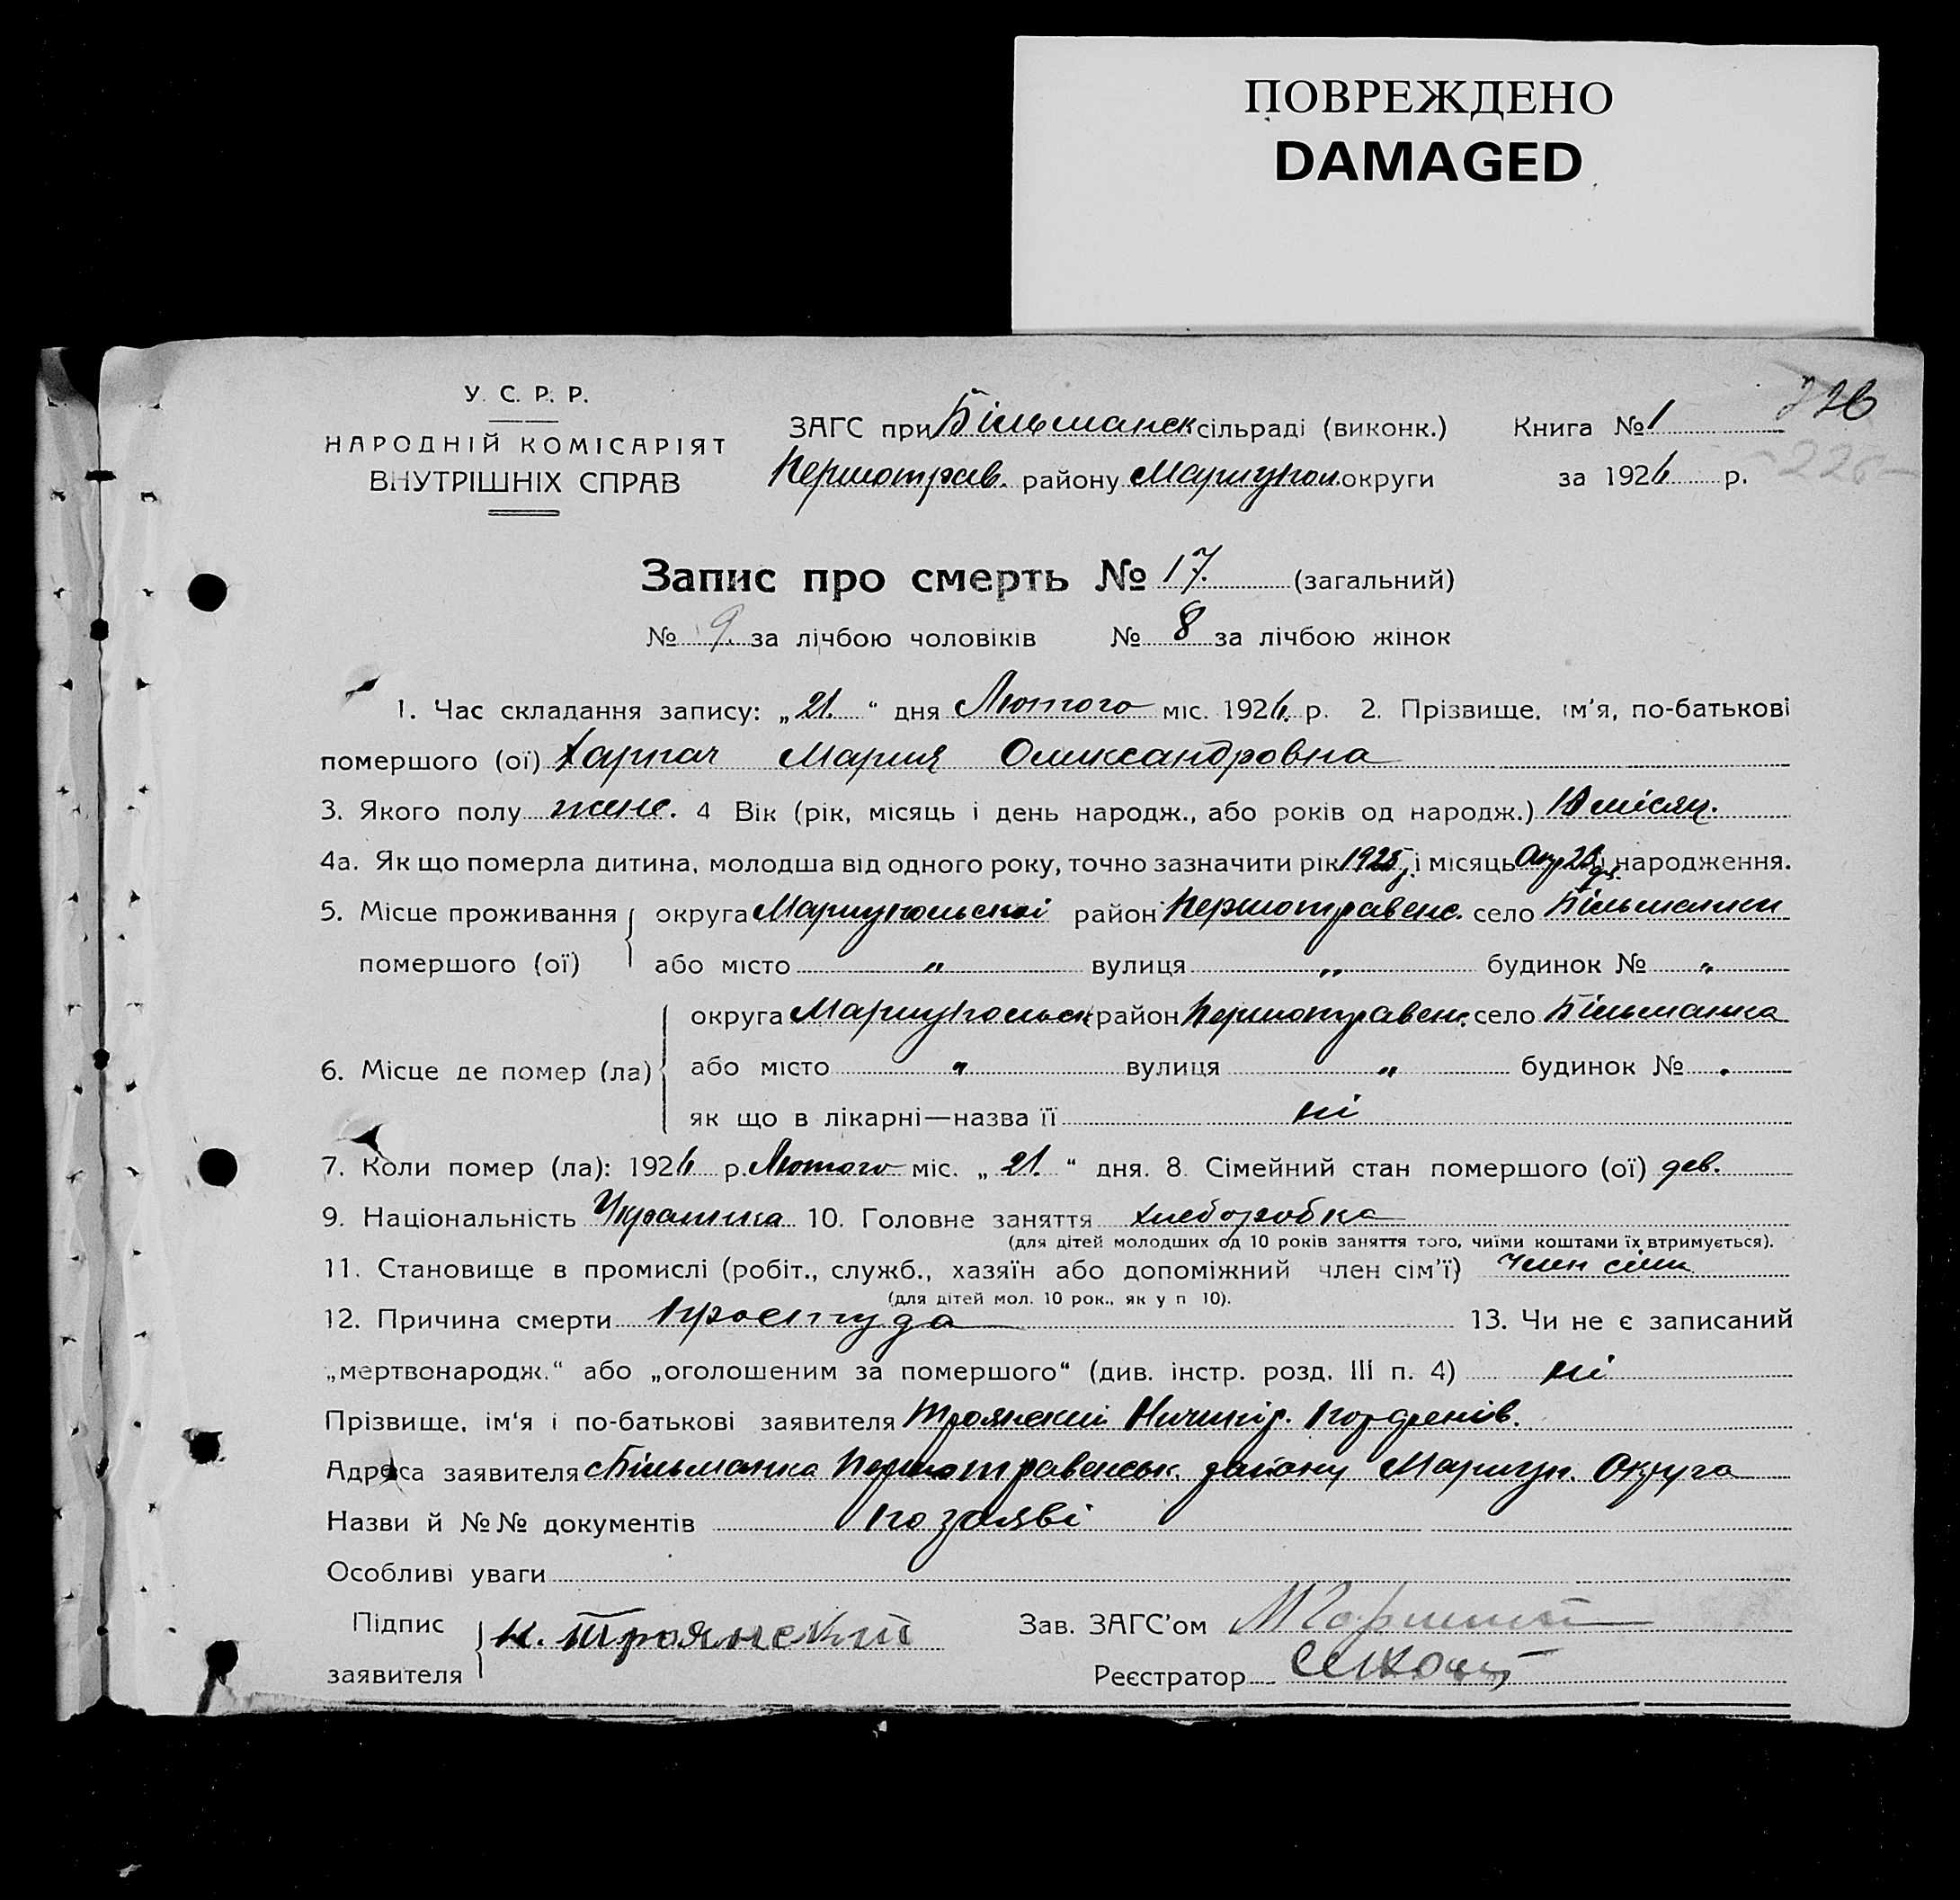 ПОВРЕЖДЕНО
DAMAGED
У. С. Р. Р.
НАРОДНІЙ КОМІСАРІЯТ
ВНУТРІШНІХ СПРАВ
ЗАГС при Більманск сільраді (виконк.)
Першотрав. району Маріупол. округи
Книга № 1
за 1926 р.
226
-226-
Запис про смерть № 17. (загальний)
№ 9. за лічбою чоловіків № 8 за лічбою жінок
1. Час складання запису: „21." дня Лютого міс. 1926. р. 2. Прізвище, ім'я, по-батькові
помершого (ої) Мария Олександровна
3. Якого полу жене. 4 Вік (рік, місяць і день народж., або років од народж.) 10 місяц.
4а. Як що померла дитина, молодша від одного року, точно зазначити рік 1925 і місяць народження.
5. Місце проживання помершого (ої) округа Мариупольскої район Першотравенс. село Більманки
або місто " вулиця " будинок № "
6. Місце де помер (ла) округа Мариупольск район Першотравенс. село Більманка
або місто " вулиця " будинок № "
як що в лікарні—назва її ні
7. Коли помер (ла): 1926 р. Лютого міс. „21." дня. 8. Сімейний стан помершого (ої) дев.
9. Національність Украинка 10. Головне заняття хлеборобка
(для дітей молодших од 10 років заняття того, чиїми коштами їх втримується).
11. Становище в промислі (робіт., служб., хазяїн або допоміжний член сім'ї) член сіми
(для дітей мол. 10 рок., як у п 10).
12. Причина смерти простуда 13. Чи не є записаний
„мертвонародж." або „оголошеним за помершого" (див. інстр. розд. III п. 4) ні
Прізвище, ім'я і по-батькові заявителя Троянский Ничипір.
Адреса заявителя Більманка Першотравенськ. району Мариуп. Округа
Назви й №№ документів по заяві
Особливі уваги
Підпис заявителя Н. Троянский
Зав. ЗАГС'ом
Реєстратор